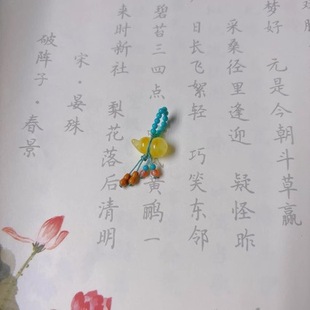 梦好 元是今朝斗草赢
采桑径里逢迎 疑怪昨
日长飞絮轻 巧笑东邻
碧苔三四点 黄鹂一
来时新社 梨花落后清明
宋·晏殊
破阵子·春景